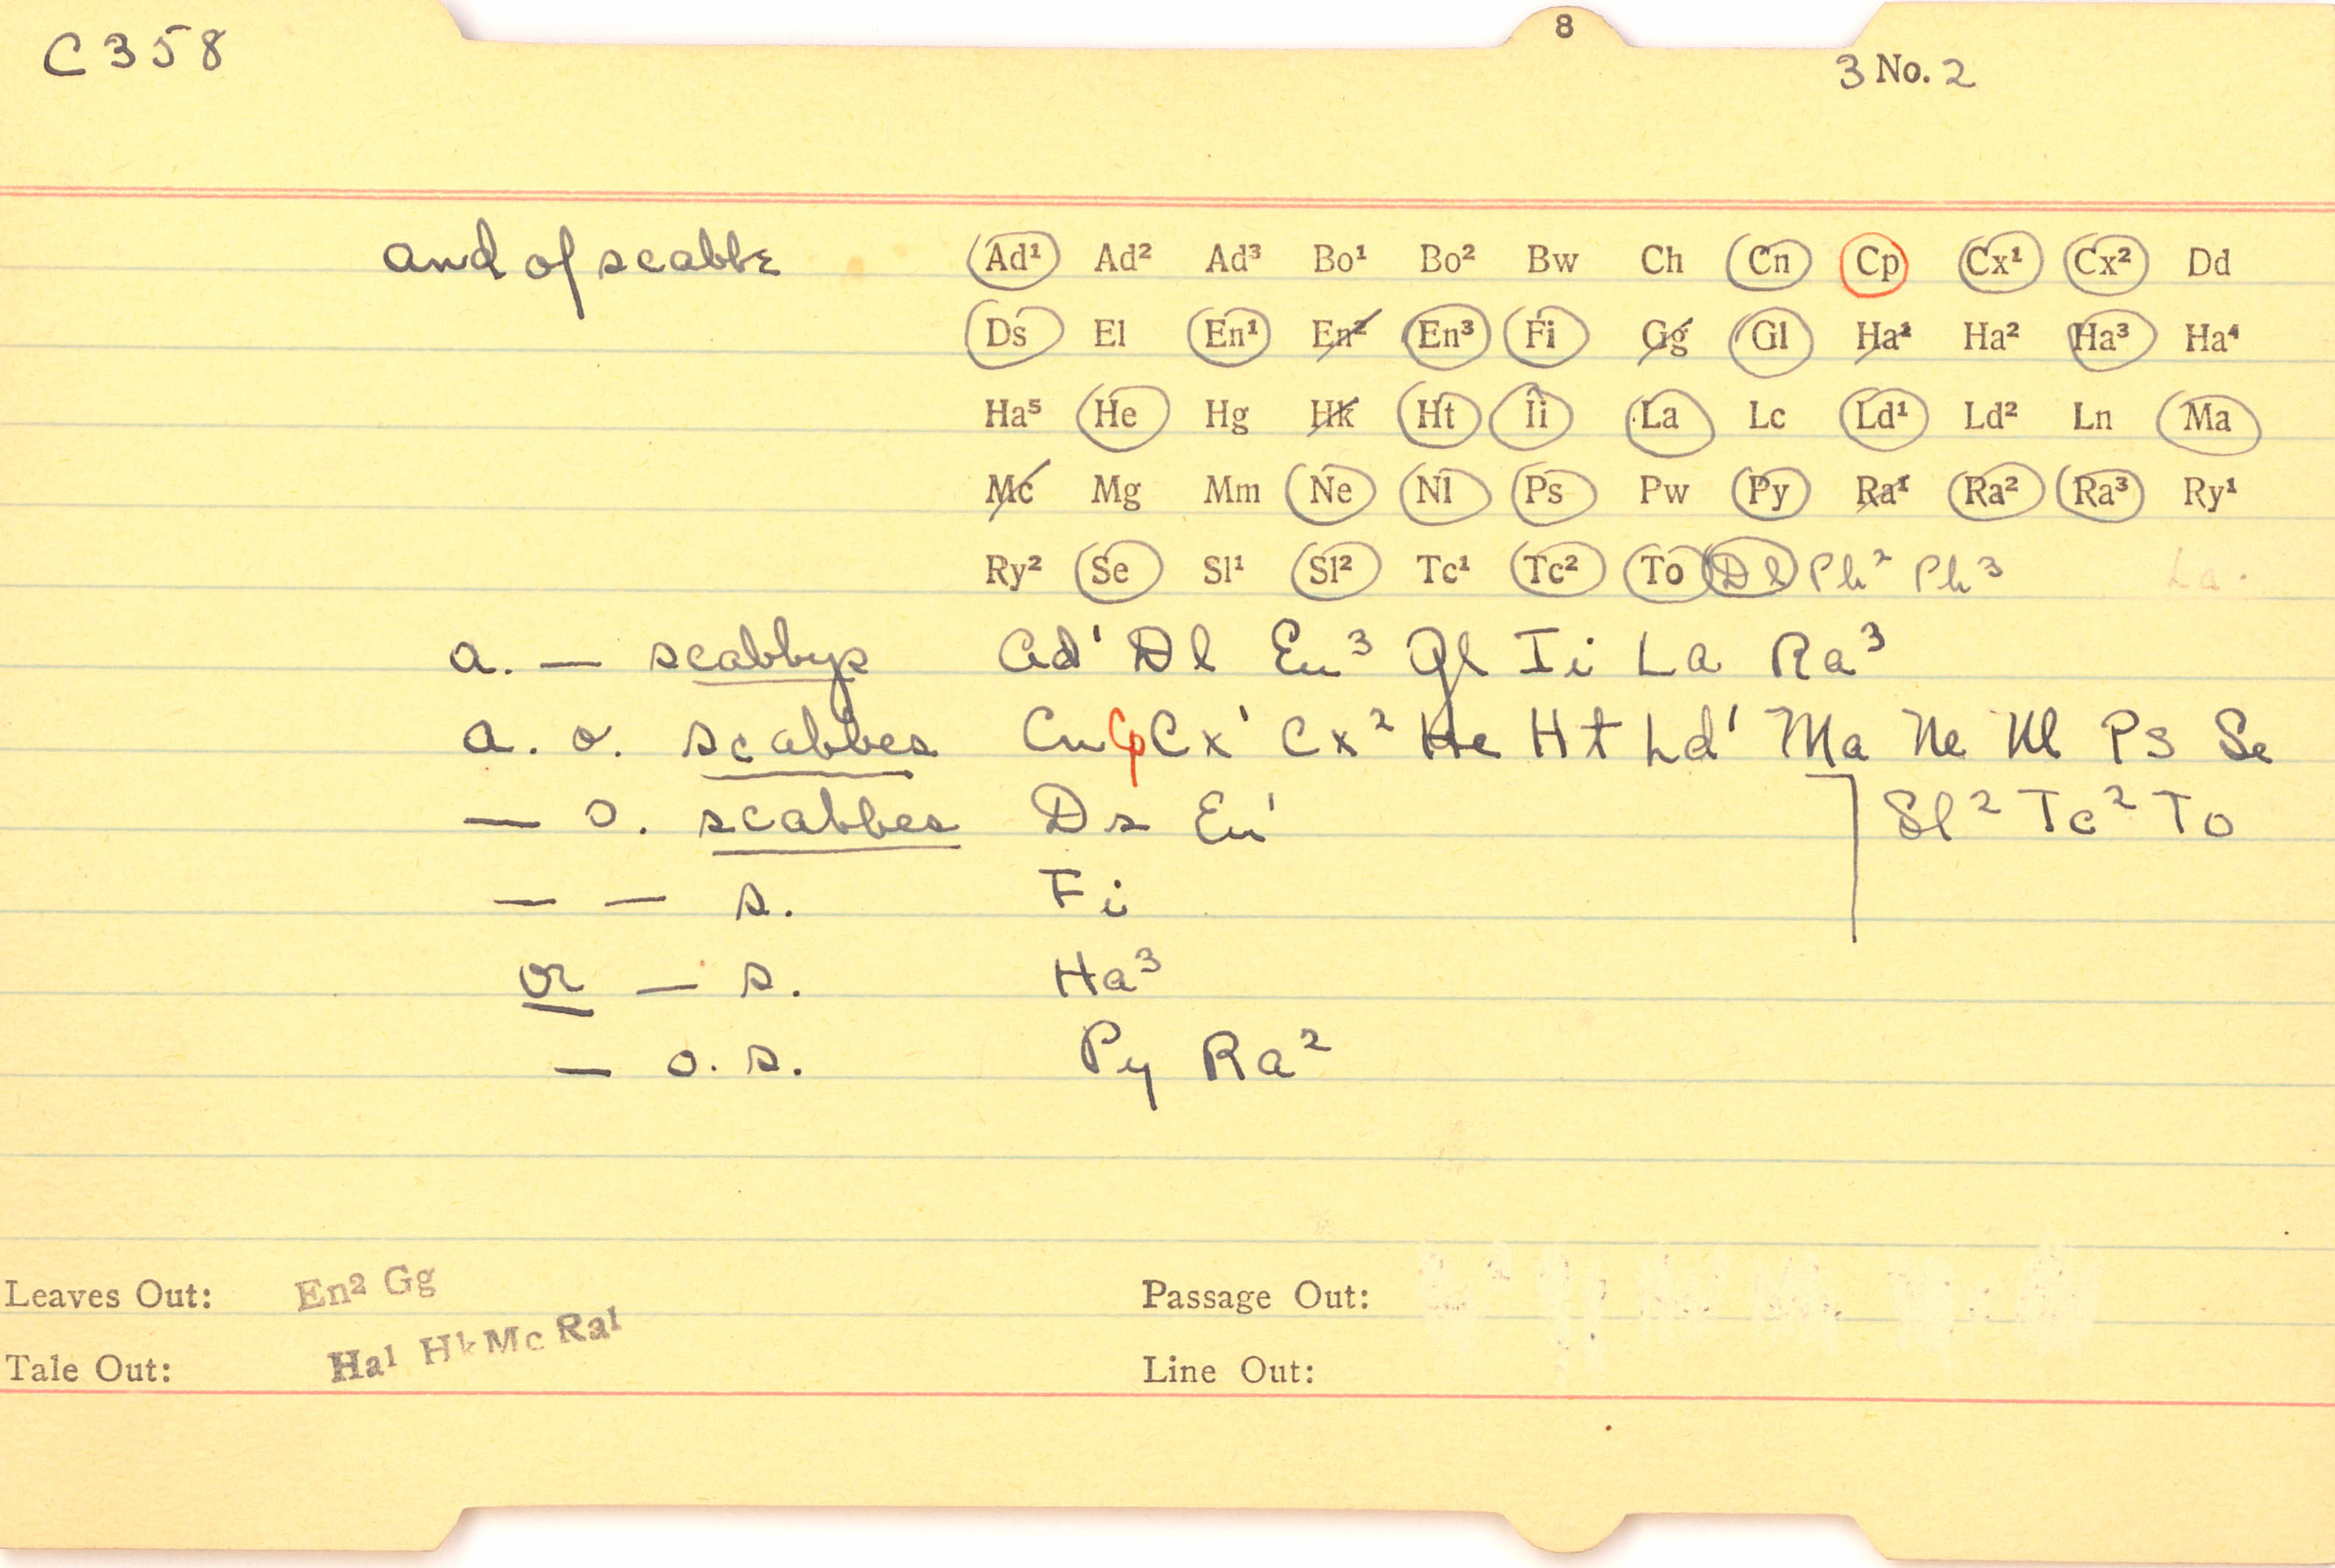 C 358
8
3 No. 2
and of scabbe Ad¹ Ad² Ad³ Bo¹ Bo² Bw Ch Cn Cp Cx¹ Cx² Dd
Ds El En¹ En² En³ Fi Gg Gl Ha¹ Ha² Ha³ Ha⁴
Ha⁵ He Hg Hk Ht Ii La Lc Ld¹ Ld² Ln Ma
Mc Mg Mm Ne Nl Ps Pw Py Ra¹ Ra² Ra³ Ry¹
Ry² Se Sl¹ Sl² Tc¹ Tc² To Dl Ph² Ph³ La
a. — scabbys Ad¹ Dl En³ Gl Ii La Ra³
a. o. scabbes Cn Cp Cx¹ Cx² He Ht Ld¹ Ma Ne Nl Ps Se
— o. scabbes Ds En¹ Sl² Tc² To
— — s. Fi
or — s. Ha³
— o. s. Py Ra²
Leaves Out: En² Gg Passage Out:
Tale Out: Ha¹ Hk Mc Ra¹ Line Out: